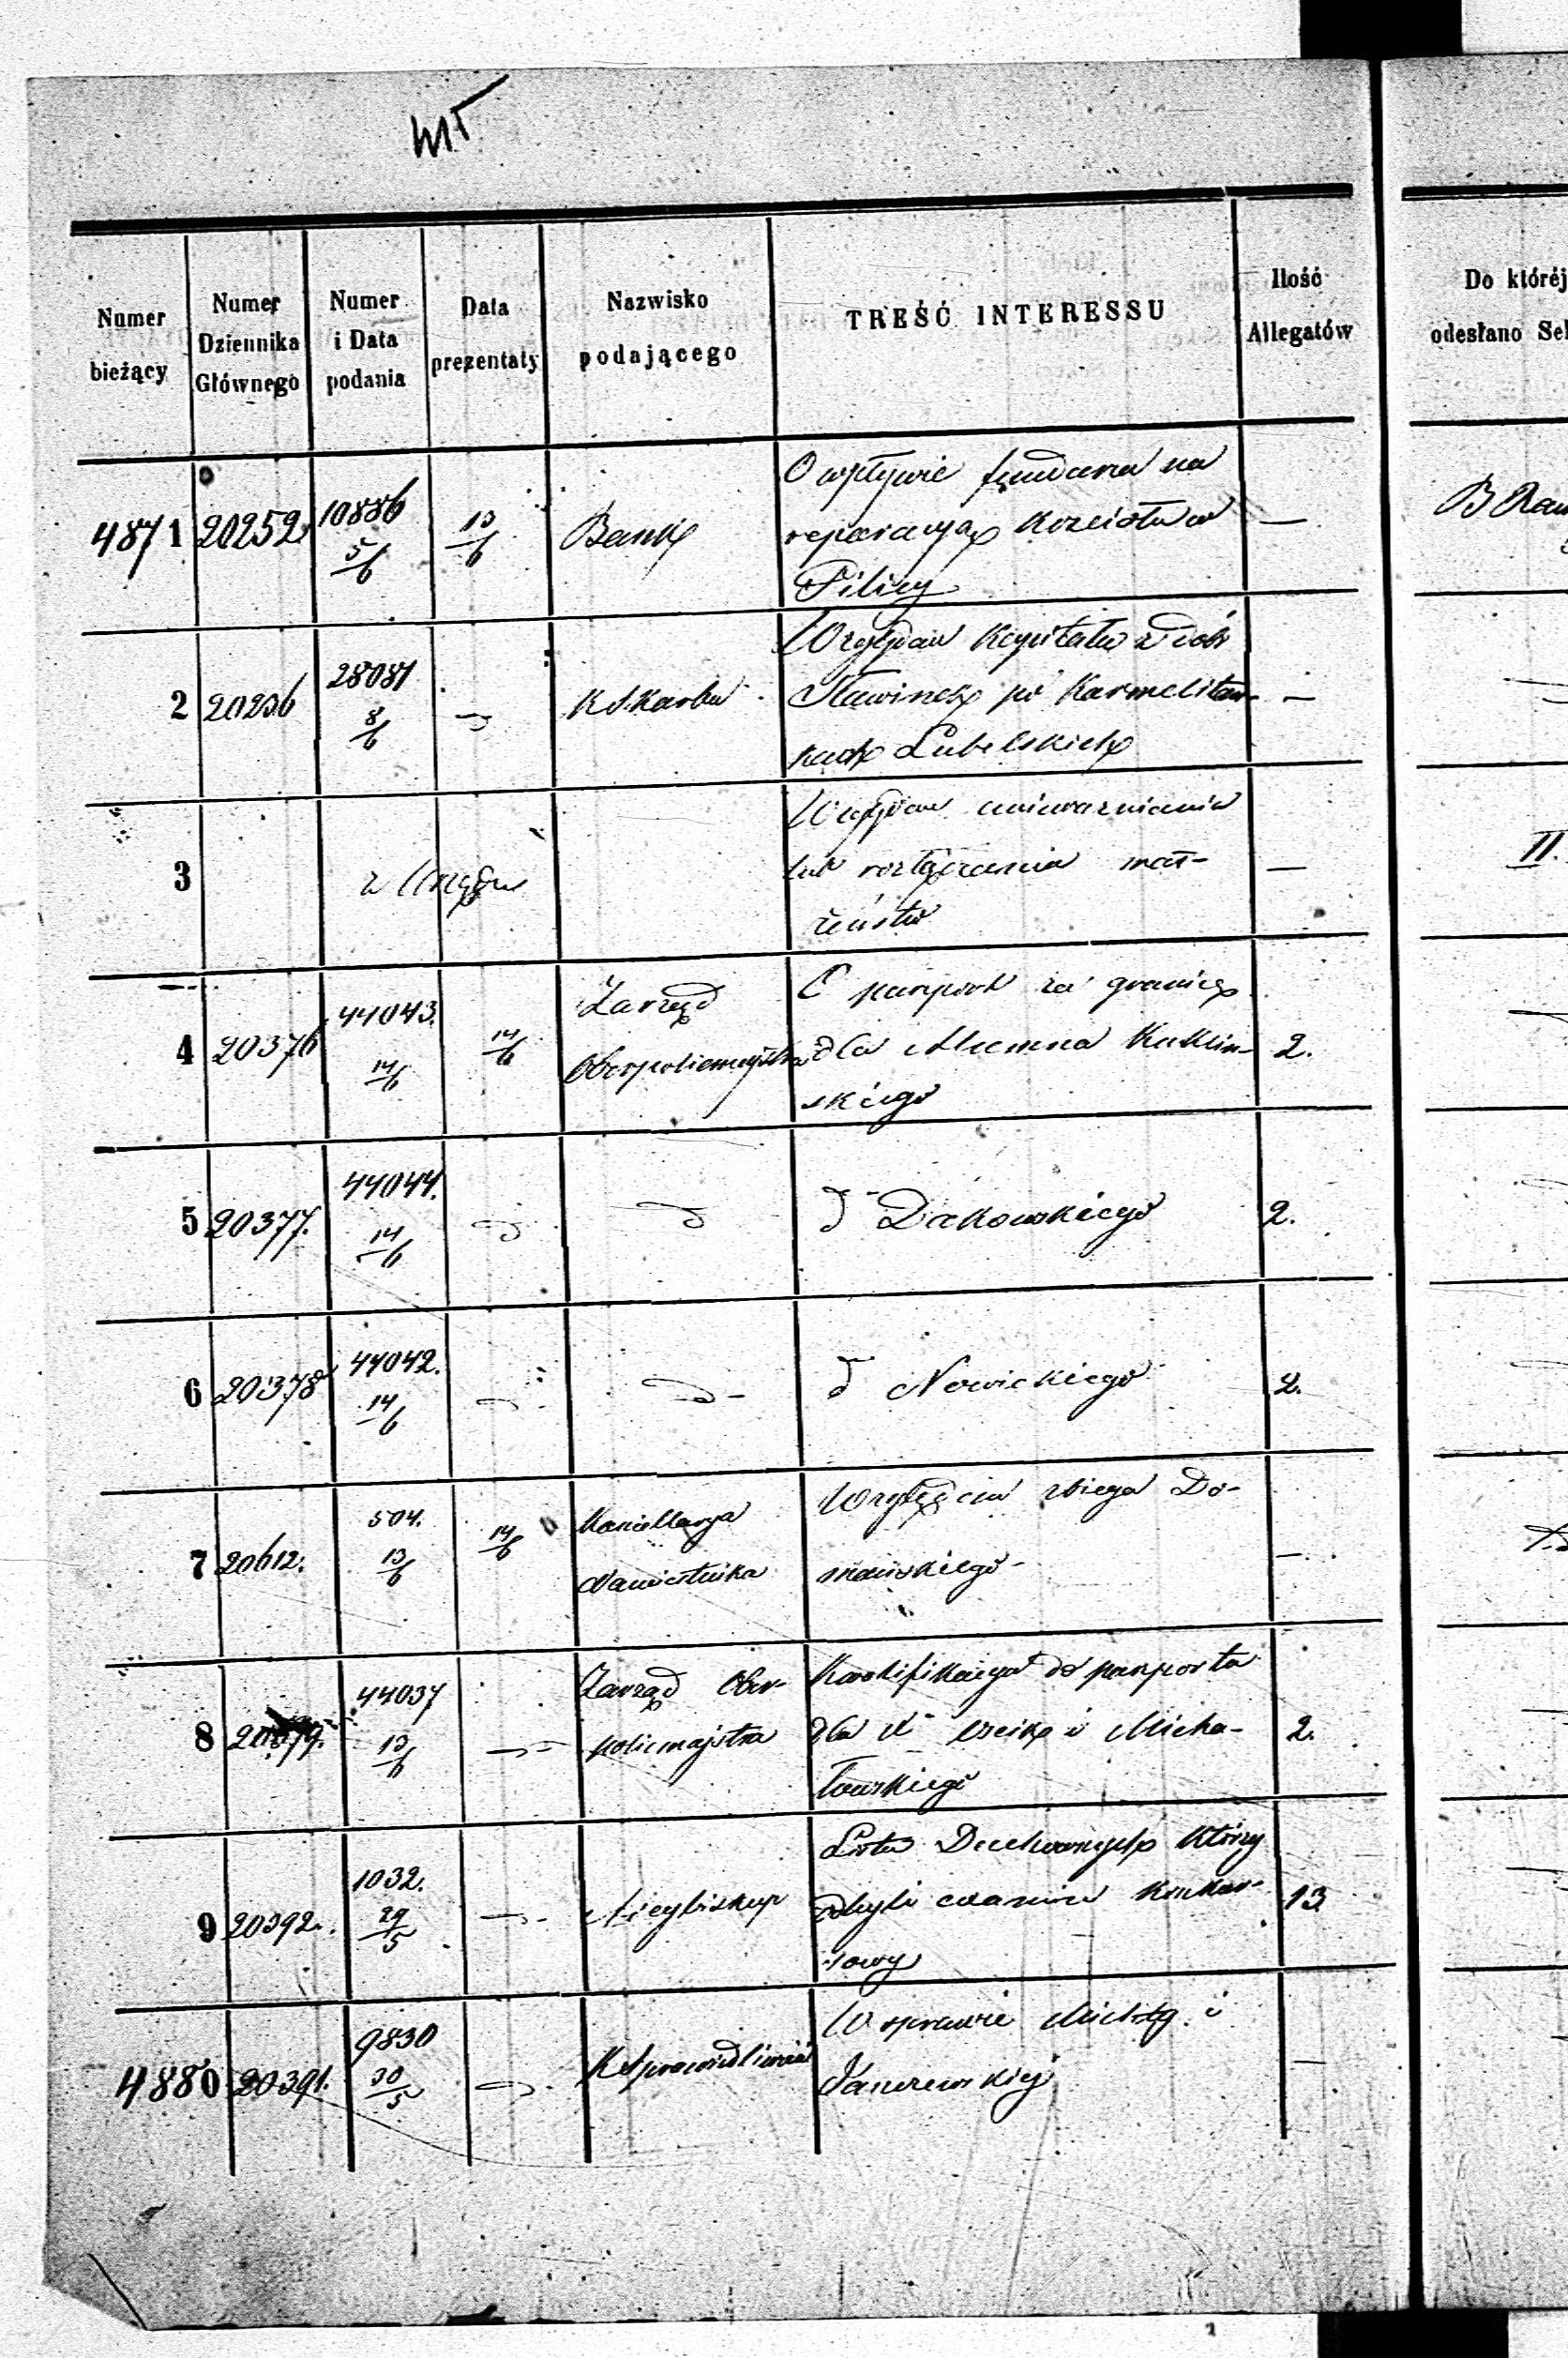 Numer bieżący
Numer Dziennika Głównego
Numer i Data podania
Data prezentaty
Nazwisko podającego
TREŚĆ INTERESSU
Ilość Allegatów
Do któréj
odesłano
4871 20252 10886 5/6 13/6 Bank
O wpływie fundusza na
reparacyą Kościoła w
Pilicy
—
2 20256 28081 8/6 K Skarbu
Względem Kapitału z dóbr
Sławinek po Karmelitan-
kach Lubelskich
—
3 z Urzędu
Względem unieważnienia
lub rozłączenia mał-
żeństw
—
II.
4 20376 44043. 14/6 14/6 Zarząd
Oberpolicmajstra
O paszport za granicę
dla Alumna Kuklin-
skiego
2.
5 20377. 44044. 14/6 d d
d Dakowskiego
2.
6 20378 44042. 14/6 d d -
d Nowickiego
2.
7 20612. 504. 13/6 14/6 Kancellarya
Namiestnika
Względem zbiega Do-
mańskiego -
—
8 44037 13/6 Zarząd Ober-
policmajstra
Kwalifikacya do paszportu
dla X i Micha-
łowskiego
2.
9 20392. 1032. 29/5
Lista Duchownych którzy
odbyli examin konkur-
sowy
13
4880 20391. 9830 30/5 K Sprawiedliwości
W sprawie i
Janczewskiej
—